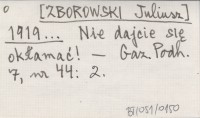 [ZBOROWSKI Juliusz]
1919... Nie dajcie się
okłamać! — Gaz. Podh.
7, nr 44: 2.
BJ/051/0150